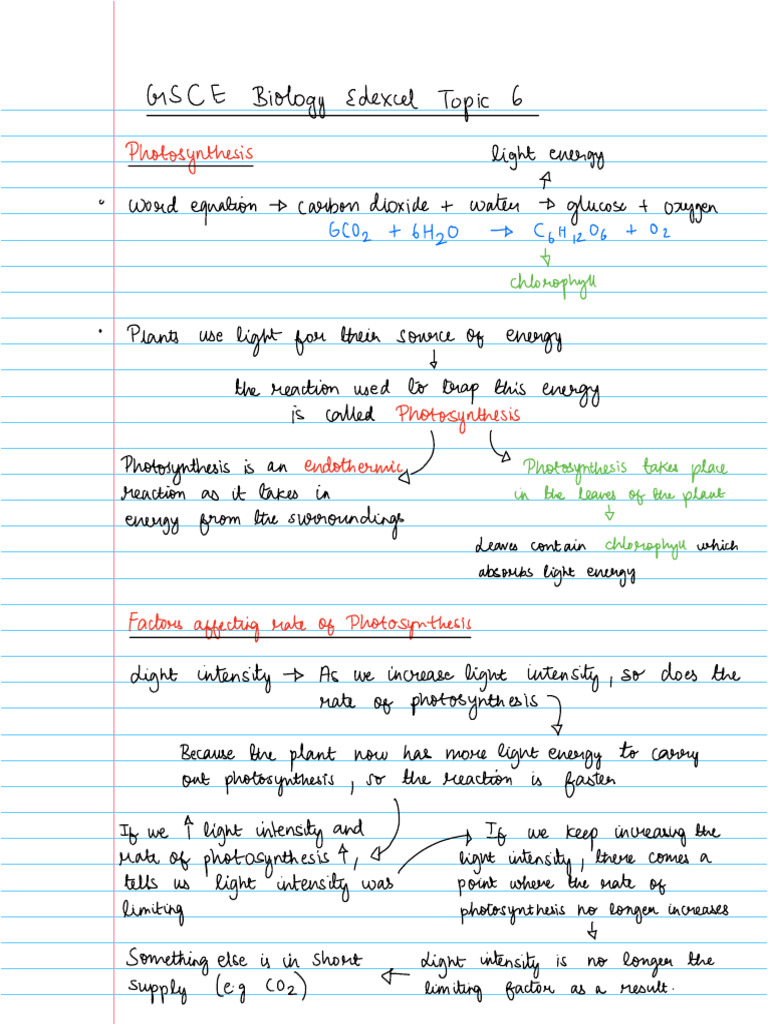 GSCE Biology Edexcel Topic 6
Photosynthesis
light energy
word equation → carbon dioxide + water → glucose + oxygen
6CO2 + 6H2O → C6H12O6 + O2
chlorophyll
Plants use light for their source of energy
the reaction used to trap this energy
is called Photosynthesis
Photosynthesis is an endothermic
reaction as it takes in
energy from the surroundings
Photosynthesis takes place
in the leaves of the plant
Leaves contain chlorophyll which
absorbs light energy
Factors affecting rate of Photosynthesis
Light intensity → As we increase light intensity, so does the
rate of photosynthesis
Because the plant now has more light energy to carry
out photosynthesis, so the reaction is faster
If we ↑ light intensity and
rate of photosynthesis ↑,
tells us light intensity was
limiting
If we keep increasing the
light intensity, there comes a
point where the rate of
photosynthesis no longer increases
Light intensity is no longer the
limiting factor as a result.
Something else is in short
supply (e.g CO2)